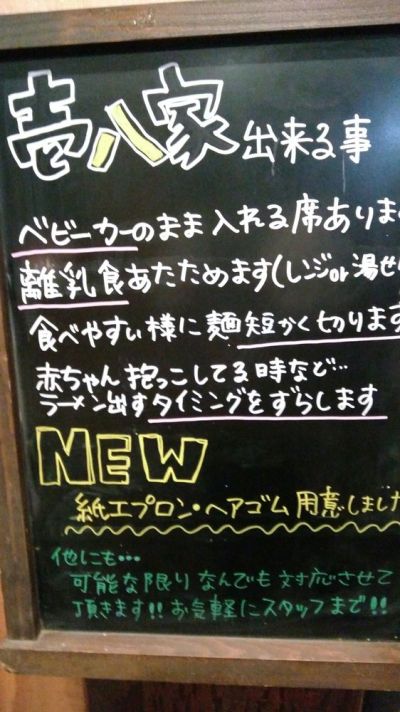 壱八家 出来る事
ベビーカーのまま入れる席ありま
離乳食あたためます(レンジor湯せ
食べやすい様に麺短かく切ります
赤ちゃん抱っこしてる時など…
ラーメン出すタイミングをずらします
NEW
紙エプロン・ヘアゴム用意しました
他にも…
可能な限りなんでも対応させて
頂きます!!お気軽にスタッフまで!!